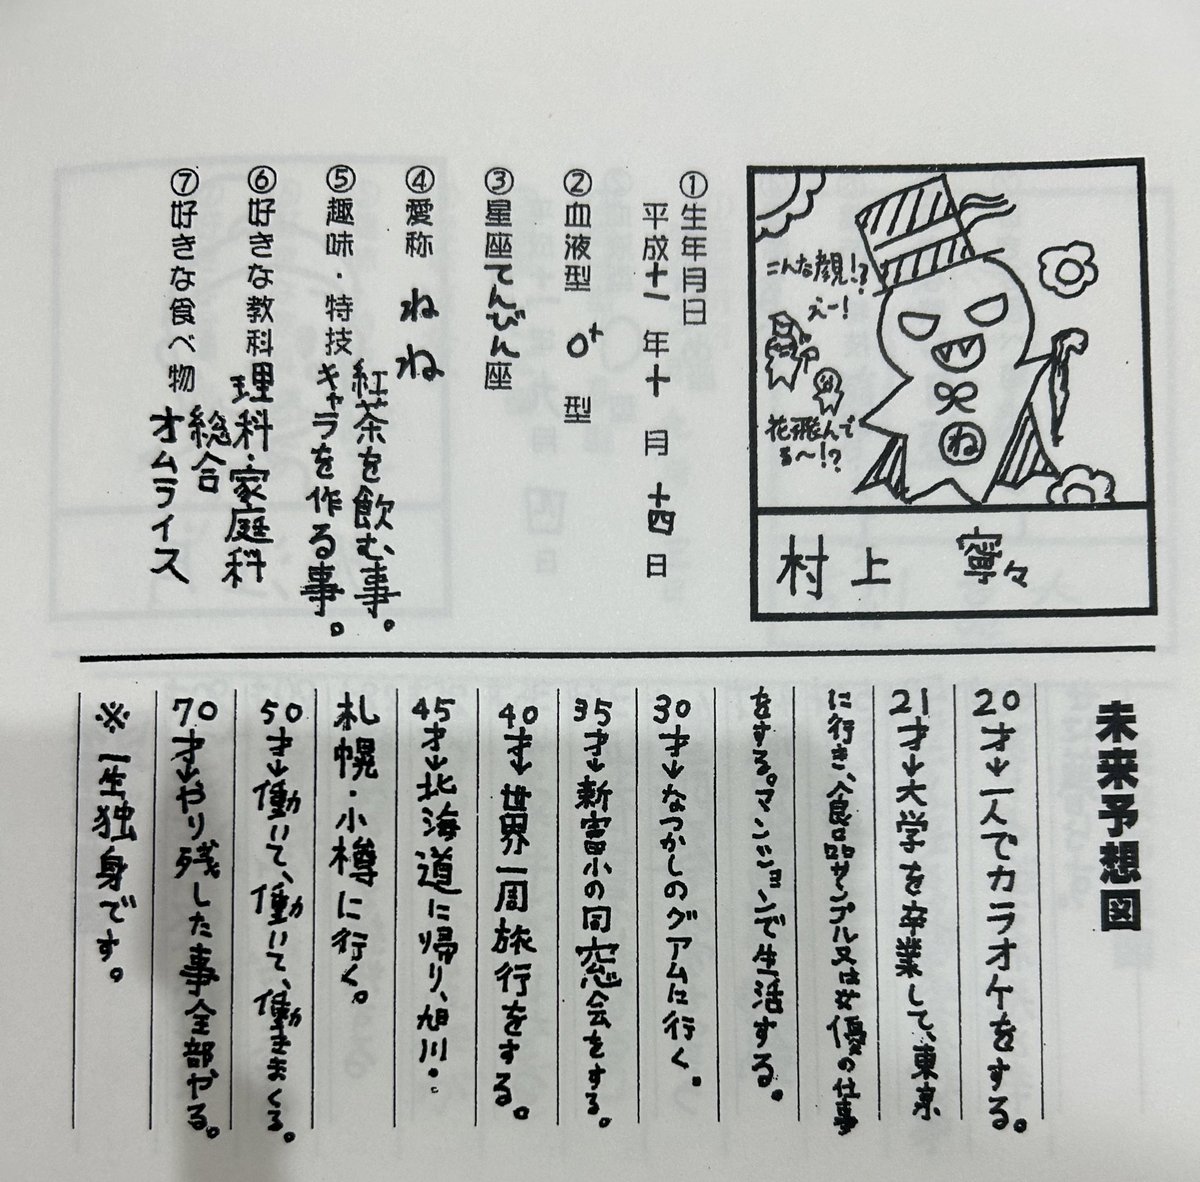 こんな顔!?
えー!
花飛んで
る〜!?
ね
村上 寧々
①生年月日
平成十一年十月十四日
②血液型 O+型
③星座てんびん座
④愛称 ねね
⑤趣味・特技 紅茶を飲む事。
キャラを作る事。
⑥好きな教科 理科・家庭科
総合
⑦好きな食べ物 オムライス
未来予想図
20才→一人でカラオケをする。
21才→大学を卒業して、東京
に行き、食品サンプル又は女優の仕事
をする。マンションで生活する。
30才→なつかしのグアムに行く。
35才→新富小の同窓会をする。
40才→世界一周旅行をする。
45才→北海道に帰り、旭川・
札幌・小樽に行く。
50才→働いて、働いて、働きまくる。
70才→やり残した事全部やる。
※一生独身です。